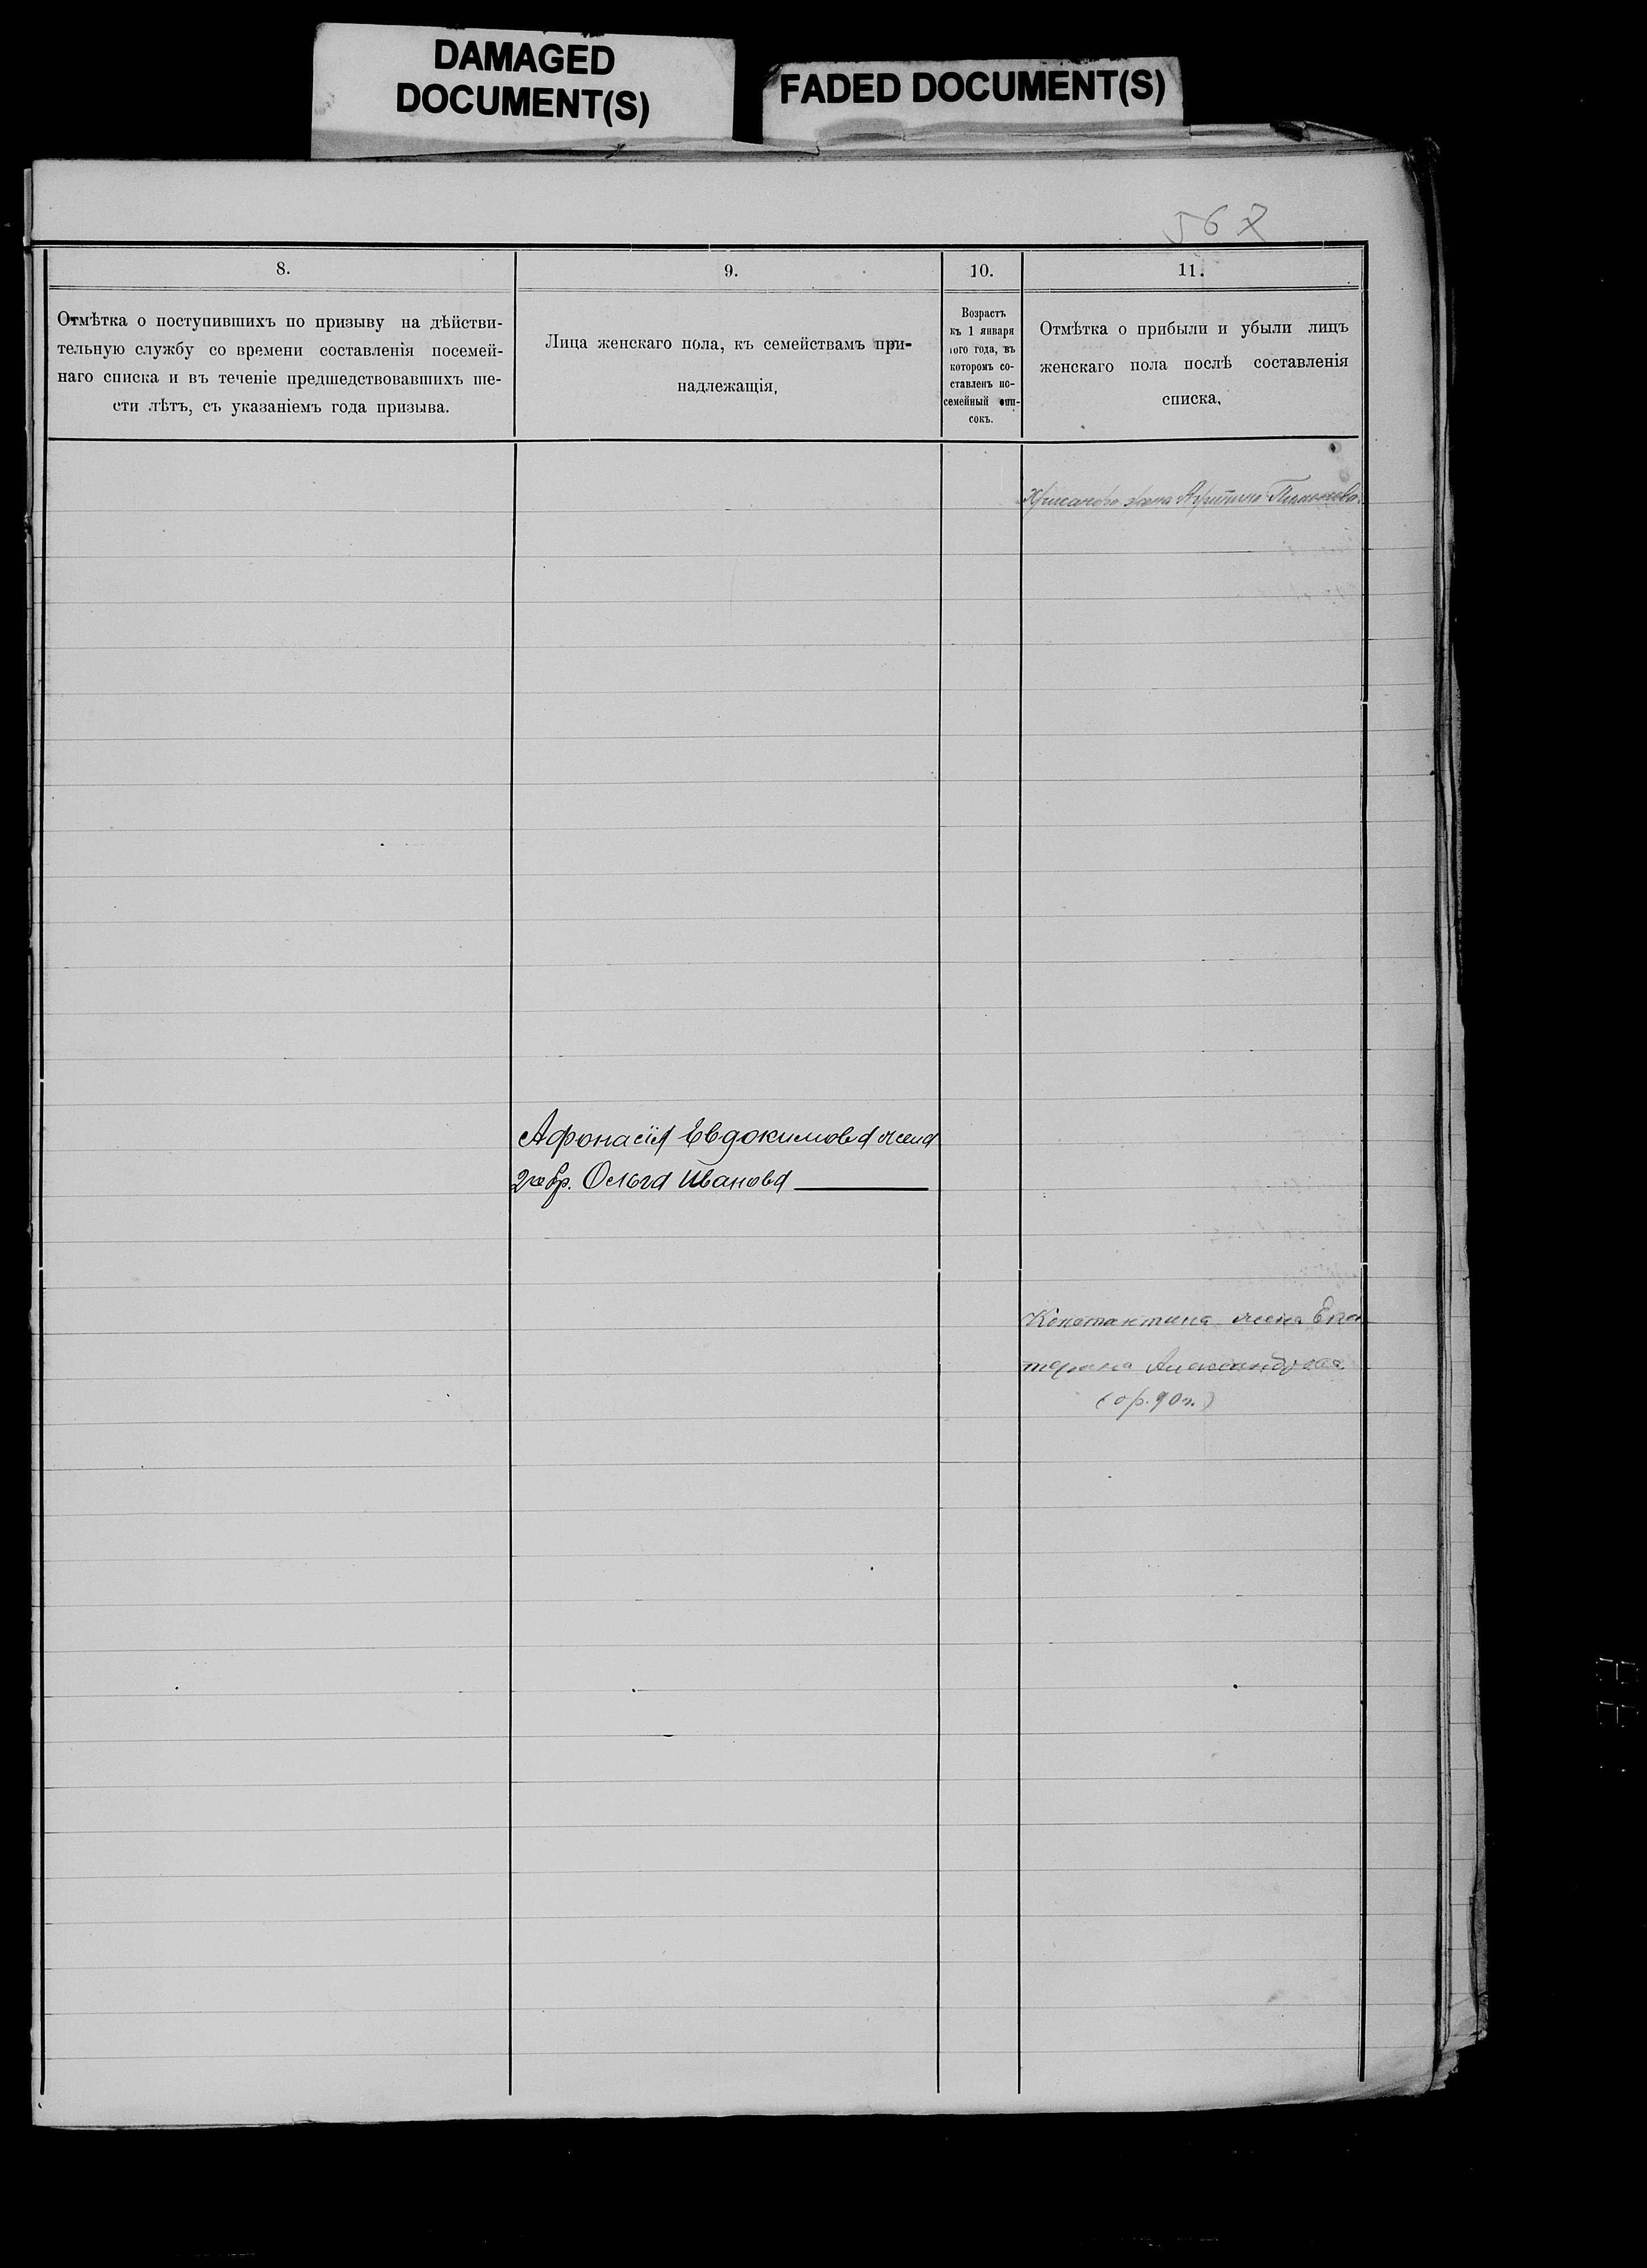 DAMAGED
DOCUMENT(S)
FADED DOCUMENT(S)
567
8.
9.
10.
11.
Отмѣтка о поступившихъ по призыву на дѣйстви-
тельную службу со времени составленія посемей-
наго списка и въ теченіе предшедствовавшихъ ше-
сти лѣтъ, съ указаніемъ года призыва.
Лица женскаго пола, къ семействамъ при-
надлежащія,
Возрастъ
къ 1 января
того года, въ
которомъ со-
ставленъ по-
семейный спи-
сокъ.
Отмѣтка о прибыли и убыли лицъ
женскаго пола послѣ составленія
списка,
жена
Афонасія Евдокимова жена
2го бр. Ольга Иванова
Константина жена Ека
терина Александрова
(ор. 90 г.)